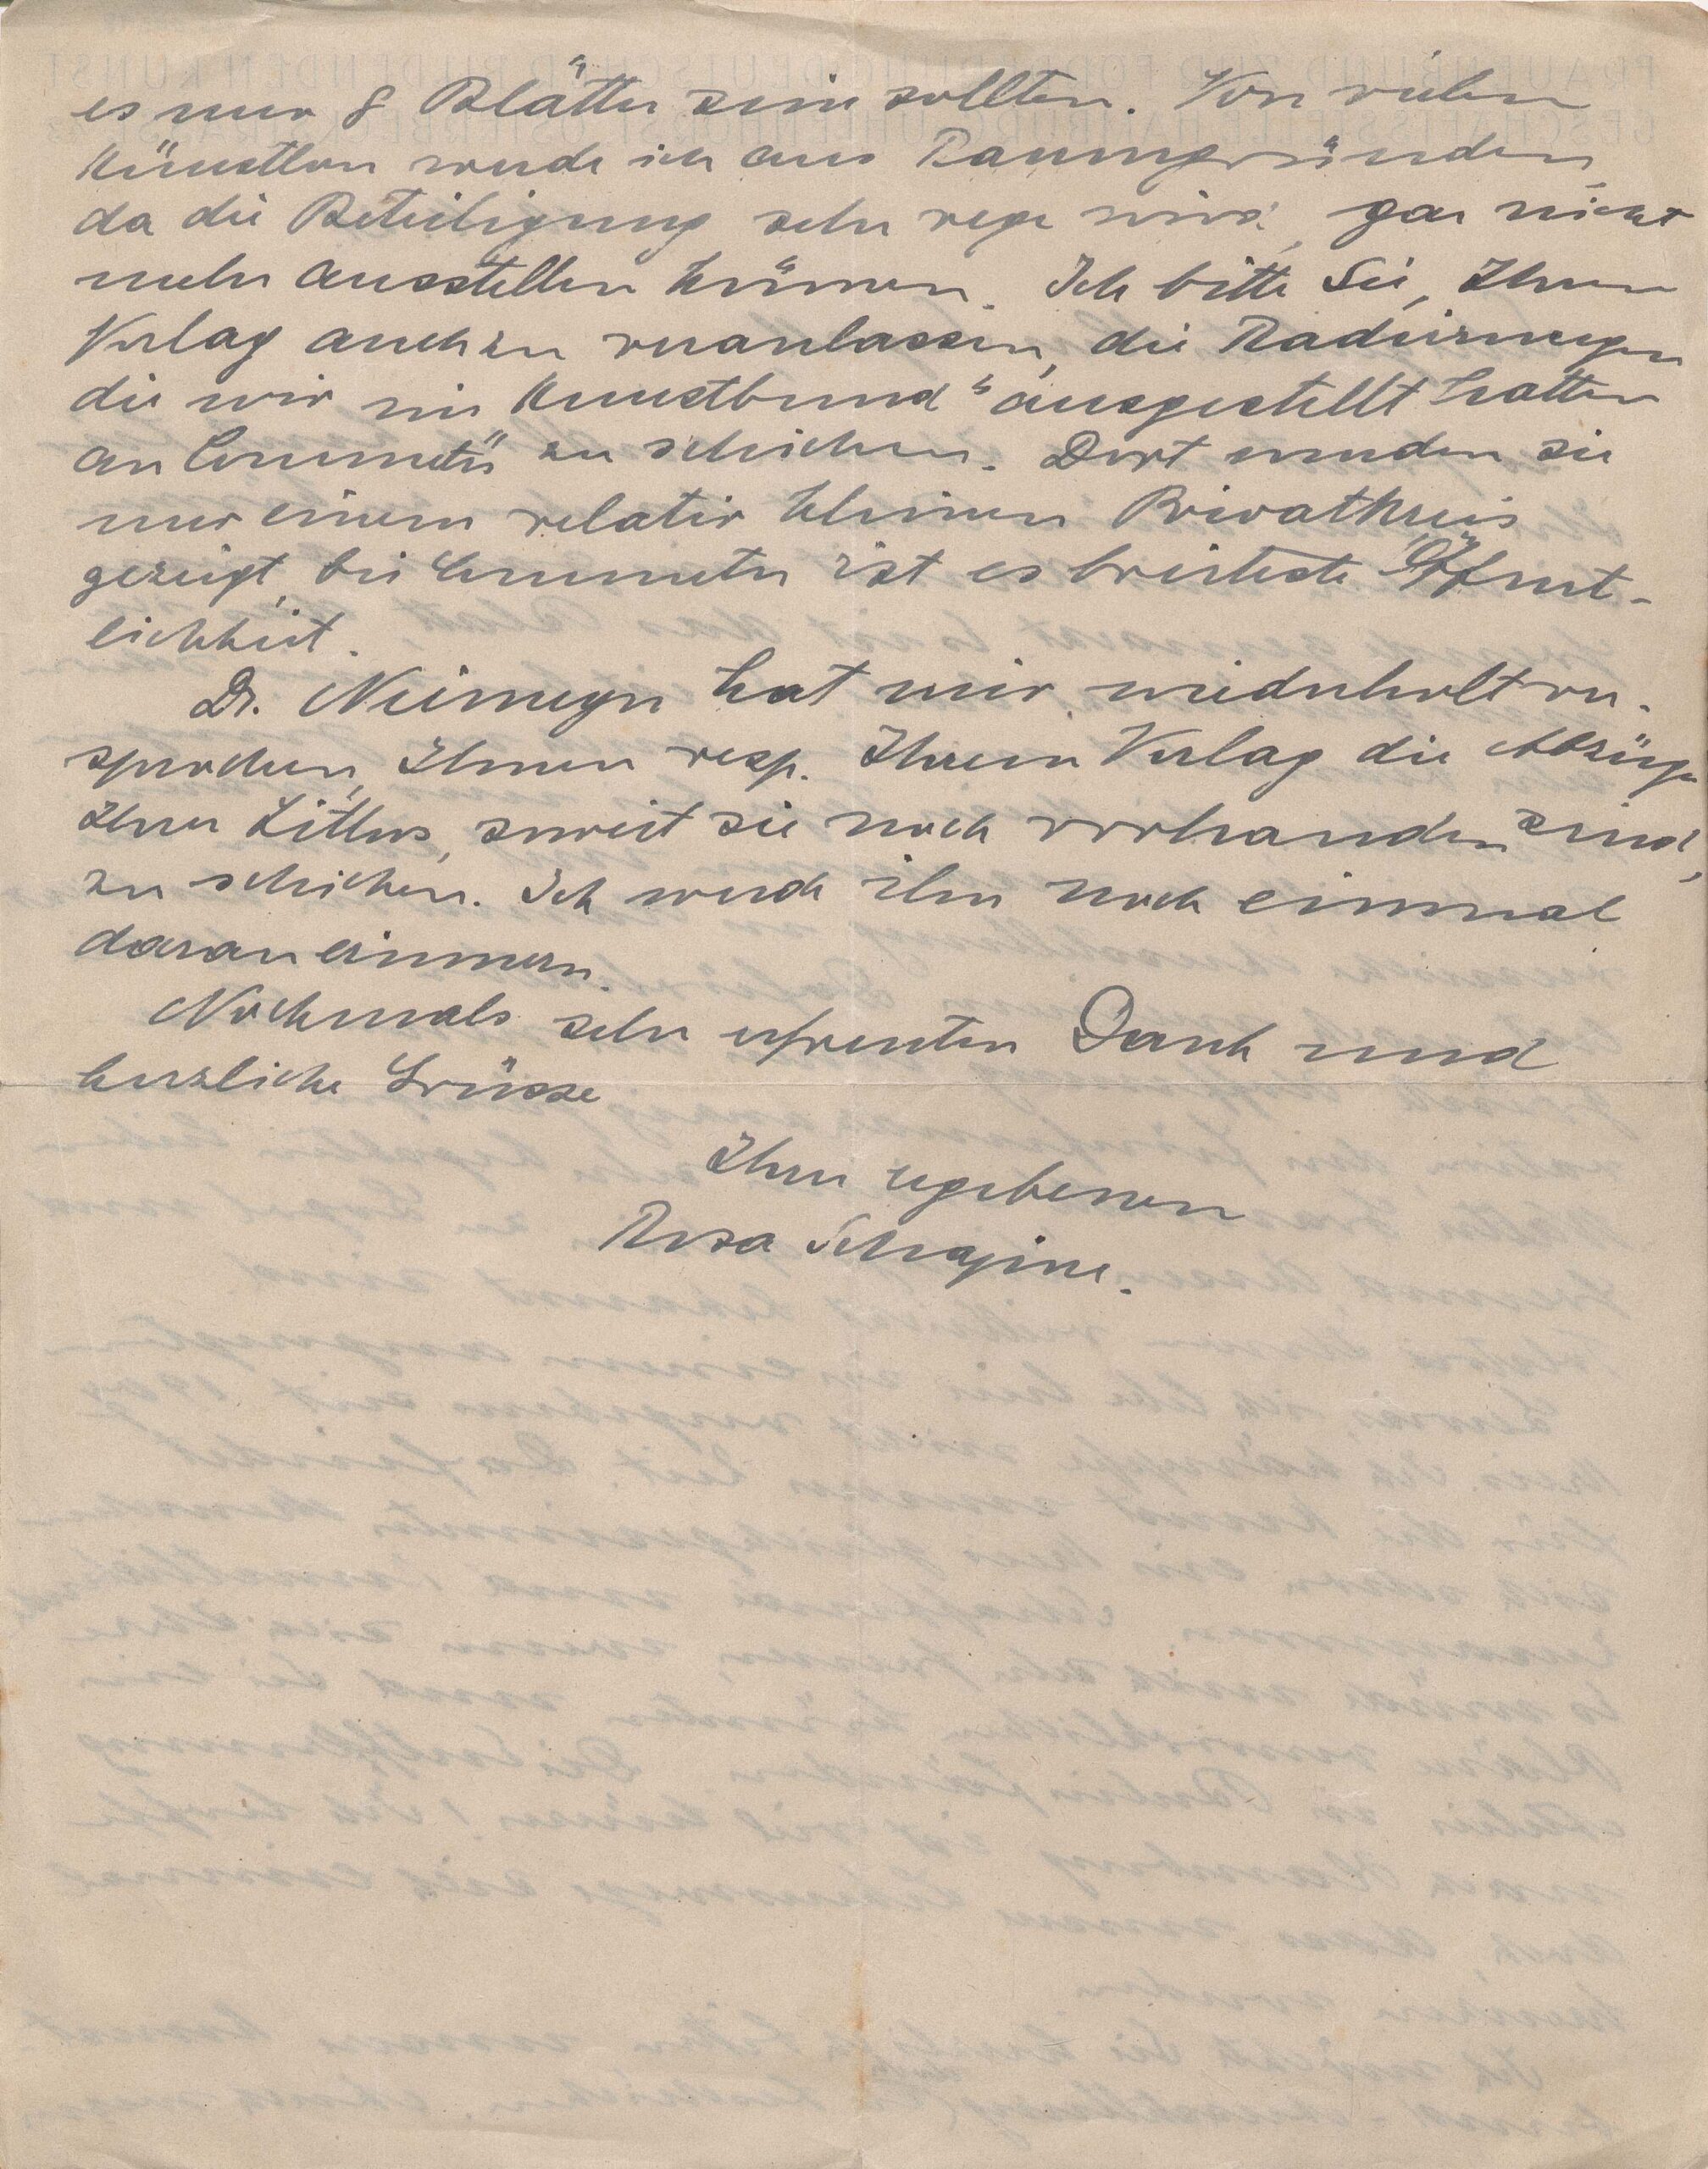 es nur 8 Blätter sein sollten. Von vielen
Künstlern werde ich aus Raumgründen,
da die Beteiligung sehr rege wird, gar nicht
mehr ausstellen können. Ich bitte Sie, Ihren
Verlag auch zu veranlassen, die Radierungen
die wir im Kunstbund" ausgestellt hatten
an Commeter zu schicken. Dort wurden sie
nur einem relativ kleinen Privatkreis
gezeigt, bei Commeter ist es breiteste Öffent-
lichkeit.
Dr. Niemeyer hat mir wiederholt ver-
sprochen, Ihnen resp. Ihrem Verlag die Abzüge
Ihrer Lithos, soweit sie noch vorhanden sind,
zu schicken. Ich werde ihn noch einmal
daran erinnern.
Nochmals sehr erfreuten Dank und
herzliche Grüsse
Ihrer ergebenen
Rosa Schapire.